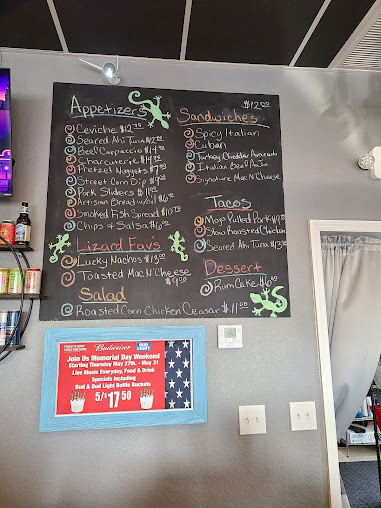 Appetizers
Ceviche $12.75
Seared Ahi Tuna $12
Beef Carpaccio $14
Charcuterie $14
Pretzel Nuggets $7
Street Corn Dip $9
Pork Sliders $11
Artisan Bread w/oil $6
Smoked Fish Spread $10
Chips & Salsa $6
Lizard Favs
Lucky Nachos $13.00
Toasted Mac N' Cheese
$9.00
Salad
Roasted Corn Chicken Ceasar $11.00
$12.00
Sandwiches
Spicy Italian
Cuban
Turkey Cheddar Avocado
Italian Beef Au Jus
Signature Mac N' Cheese
Tacos
Mojo Pulled Pork
Slow Roasted Chicken
Seared Ahi Tuna $13
Dessert
Rum Cake $6.00
Budweiser
BUD LIGHT
Join Us Memorial Day Weekend
Starting Thursday May 27th - May 31
Live Music Everyday, Food & Drink
Specials Including
Bud & Bud Light Bottle Buckets
5/$17.50